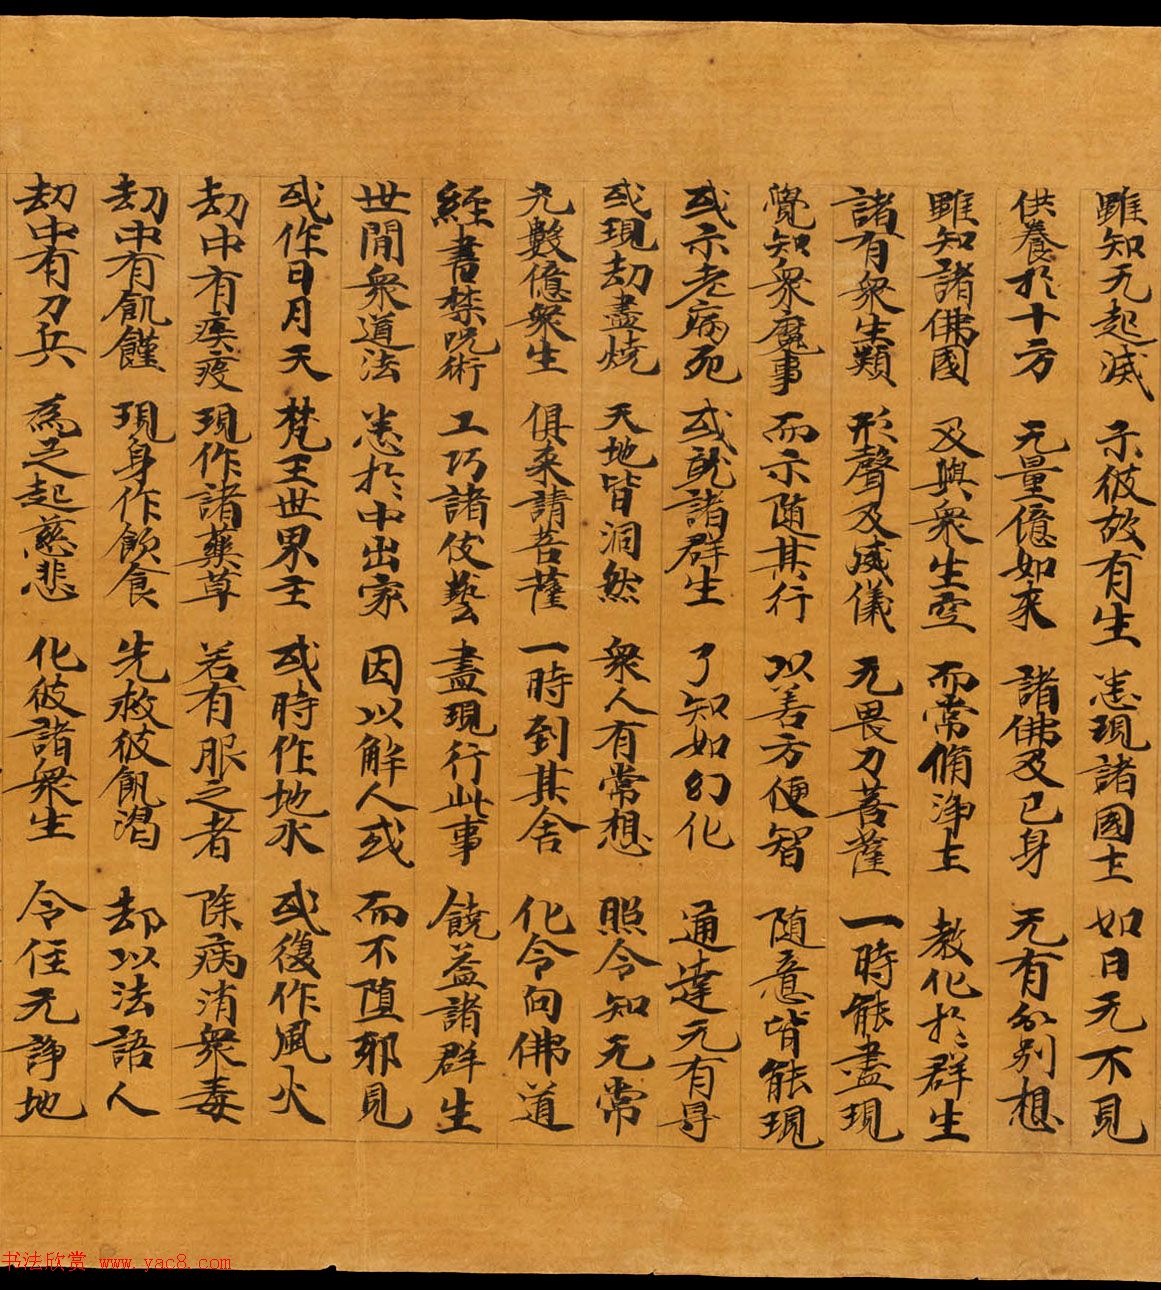 雖知无起滅 示彼故有生 悉現諸國土 如日无不見
供養於十方 无量億如來 諸佛及己身 无有分別想
雖知諸佛國 及與衆生空 而常脩淨土 教化於群生
諸有衆生類 形聲及威儀 无畏力菩薩 一時能盡現
覺知衆魔事 而示随其行 以善方便智 随意皆能現
或示老病死 或就諸群生 了知如幻化 通達无有㝵
或現劫盡燒 天地皆洞然 衆人有常想 照令知无常
无數億衆生 俱來請菩薩 一時到其舍 化令向佛道
經書禁呪術 工巧諸伎藝 盡現行此事 饒益諸群生
世間衆道法 悉於中出家 因以解人或 而不墮邪見
或作日月天 梵王世界主 或時作地水 或復作風火
劫中有疾疫 現作諸藥草 若有服之者 除病消衆毒
劫中有飢饉 現身作飲食 先救彼飢渴 却以法語人
劫中有刀兵 爲之起慈悲 化彼諸衆生 令住无諍地
书法欣赏 www.yac8.com